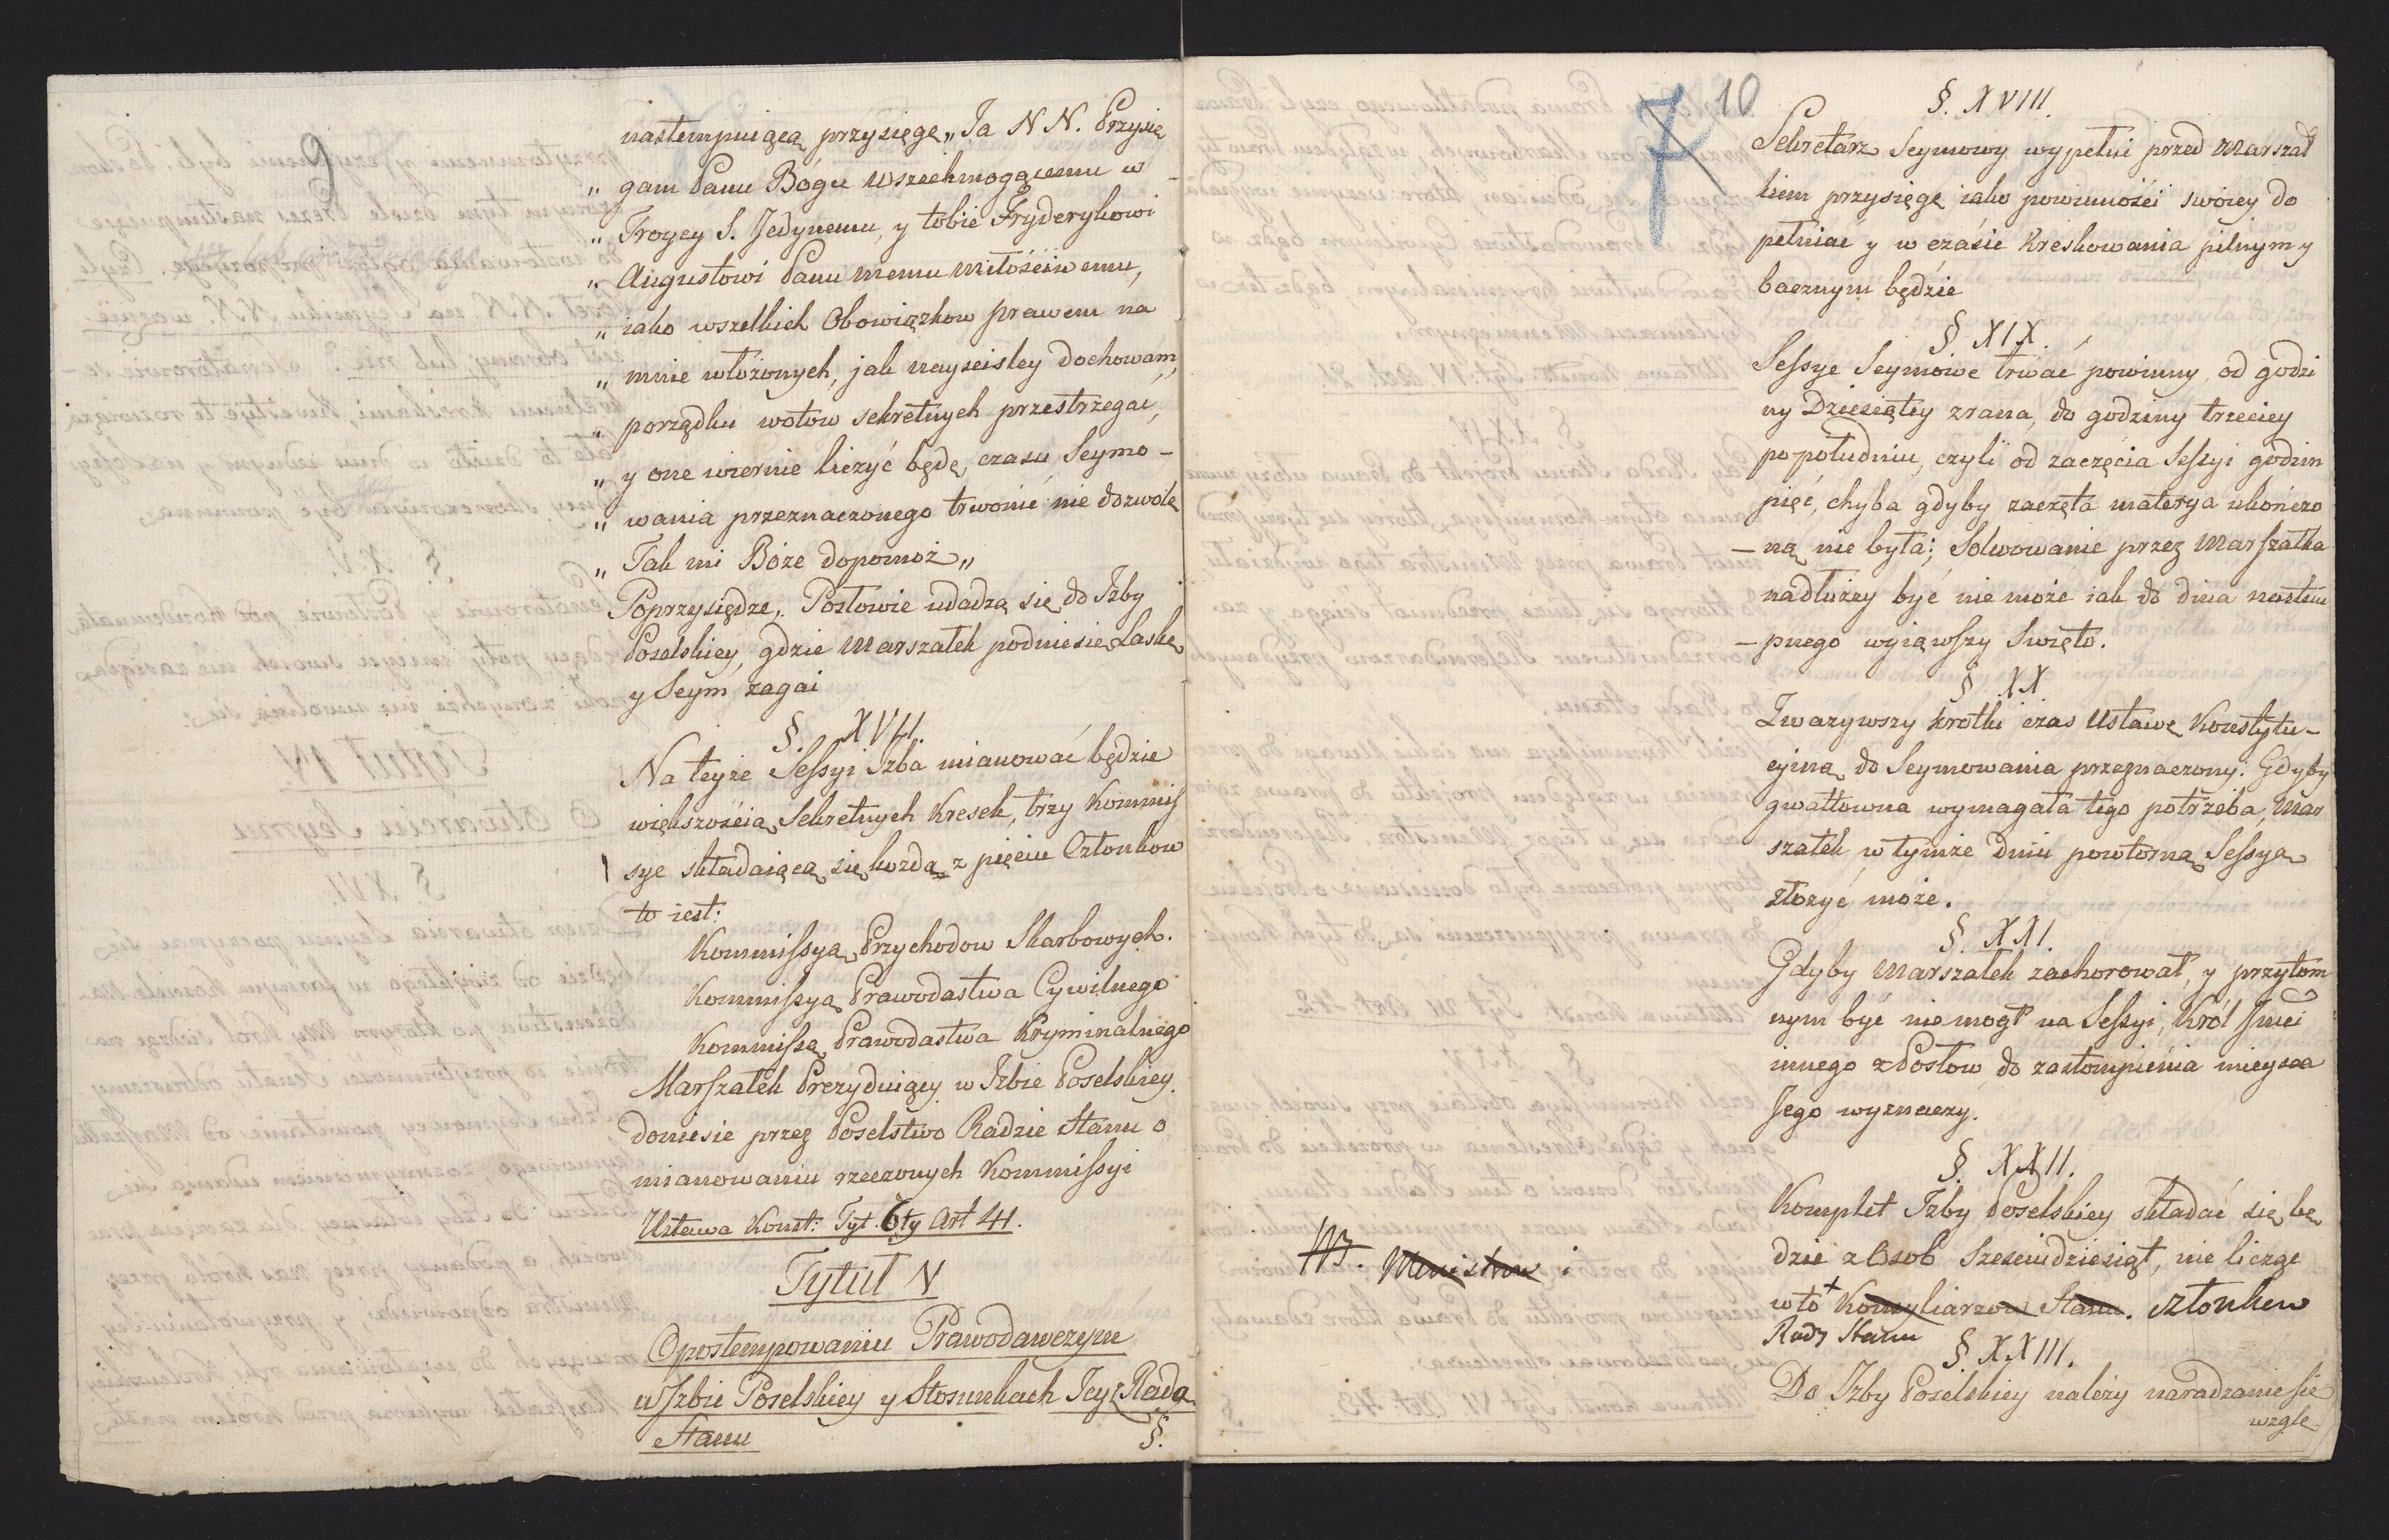 9
nastempuiącą przysięgę „ Ja N N. Przysię
„ gam Panu Bogu Wszechmogącemu w
„ Troycy S. Jedynemu, y tobie Fryderykowi
„ Augustowi Panu memu Miłościwemu,
„ iako wszelkich Obowiązkow prawem na
„ mnie włożonych, jak nayscisley dochowam,
„ porządku wotow sekretnych przestrzegać,
„ y one wiernie liczyć będę, czasu Seymo-
„ wania przeznaczonego trwonić nie dozwolę
„ Tak mi Boże dopomoż „
Poprzysiędze, Posłowie udadzą się do Izby
Poselskiey, gdzie Marszałek podniesie Laskę
y Seym zagai
§. XVII.
Na teyże Sessyi Izba mianować będzie
większością Sekretnych Kresek, trzy Kommis
sye składaiącą się kożdą z pięciu Członkow
to iest:
Kommissyą Przychodow Skarbowych.
Kommissyą Prawodastwa Cywilnego
Kommissą Prawodastwa Kryminalnego
Marszałek Prezyduiący w Izbie Poselskiey
doniesie przez Poselstwo Radzie Stanu o
mianowaniu rzeczonych Kommissyi
Ustawa Konst: Tyt. 6ty Art 41.
Tytuł V
O postempowaniu Prawodawczym
w Izbie Poselskiey y Stosunkach Jey z Radą
Stanu
§.
7 10
§. XVIII.
Sekretarz Seymowy wypełni przed Marszał
kiem przysięgę iako powinności swoiey do
pełniać y w czasie Kreskowania pilnym y
bacznym będzie
§ XIX.
Sessye Seymowe trwać powinny, od godzi
ny Dziesiątey zrana, do godziny trzeciey
popołudniu, czyli od zaczęcia Sessyi godzin
pięć, chyba gdyby zaczęta materya ukończo
-ną nie była; Solwowanie przez Marszałka
nadłużey być nie może iak do dnia nastem
-pnego wyiąwszy Swięto.
§. XX.
Zważywszy krotki czas Ustawą Konstytu-
cyiną do Seymowania przeznaczony: Gdyby
gwałtowna wymagała tego potrzeba, Mar
szałek w tymże dniu powtorną Sessyą
złożyć może.
§. XXI.
Gdyby Marszałek zachorował, y przytom
nym być niemogł na Sessyi, Król Jmci
innego z Posłow do zastompienia mieysca
Jego wyznaczy.
§. XXII.
Komplet Izby Poselskiey składać się bę
dzie z Osob Szesciudziesiąt, nie licząc
w to + Konsyliarzow Stanu. członkow
Rady Stanu
Ministrow i
§. XXIII.
Do Izby Poselskiey należy naradzanie się
wzglę-